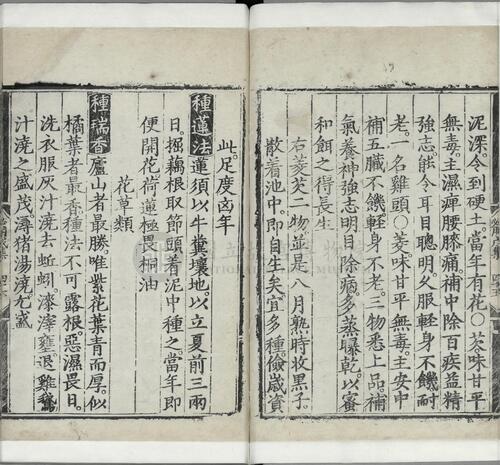 泥深令到硬土當年有花○芡味甘平
無毒主濕痺腰膝痛補中除百疾益精
強志能令耳目聰明久服輕身不饑耐
老一名雞頭○菱味甘平無毒主安中
補五臟不饑輕身不老三物悉上品補
氣養神強志明目除病多蒸曝乾以蜜
和餌之得長生
右菱芡二物並是八月熟時收黑子
散着池中即自生矣宜多種儉歲資
此足度凶年
種蓮法蓮須以牛糞壤地以立夏前三兩
日掘藕根取節頭着泥中種之當年即
便開花荷蓮極畏桐油
花草類
種瑞香廬山者最勝唯紫花葉青而厚似
橘葉者最香種法不可露根惡濕畏日
洗衣服灰汁澆去蚯蚓漆滓壅退雞鵞
汁澆之盛茂潯猪湯澆尤盛